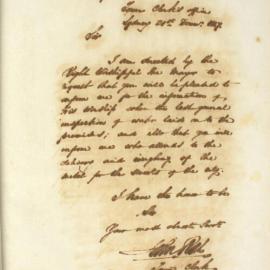 Town Clerk's Office
Sydney 28th Decr. 1857
Sir
I am directed by the
Right Worshipful the Mayor to
request that you will be pleased to
inform me for the information of
His Worship when the last general
inspection of work laid out to the
; and also that you will
inform me who attends to the
delivery and weighing of the
metal for the streets of the City.
I have the honor to be
Sir
Your most obedt Servt
Town Clerk